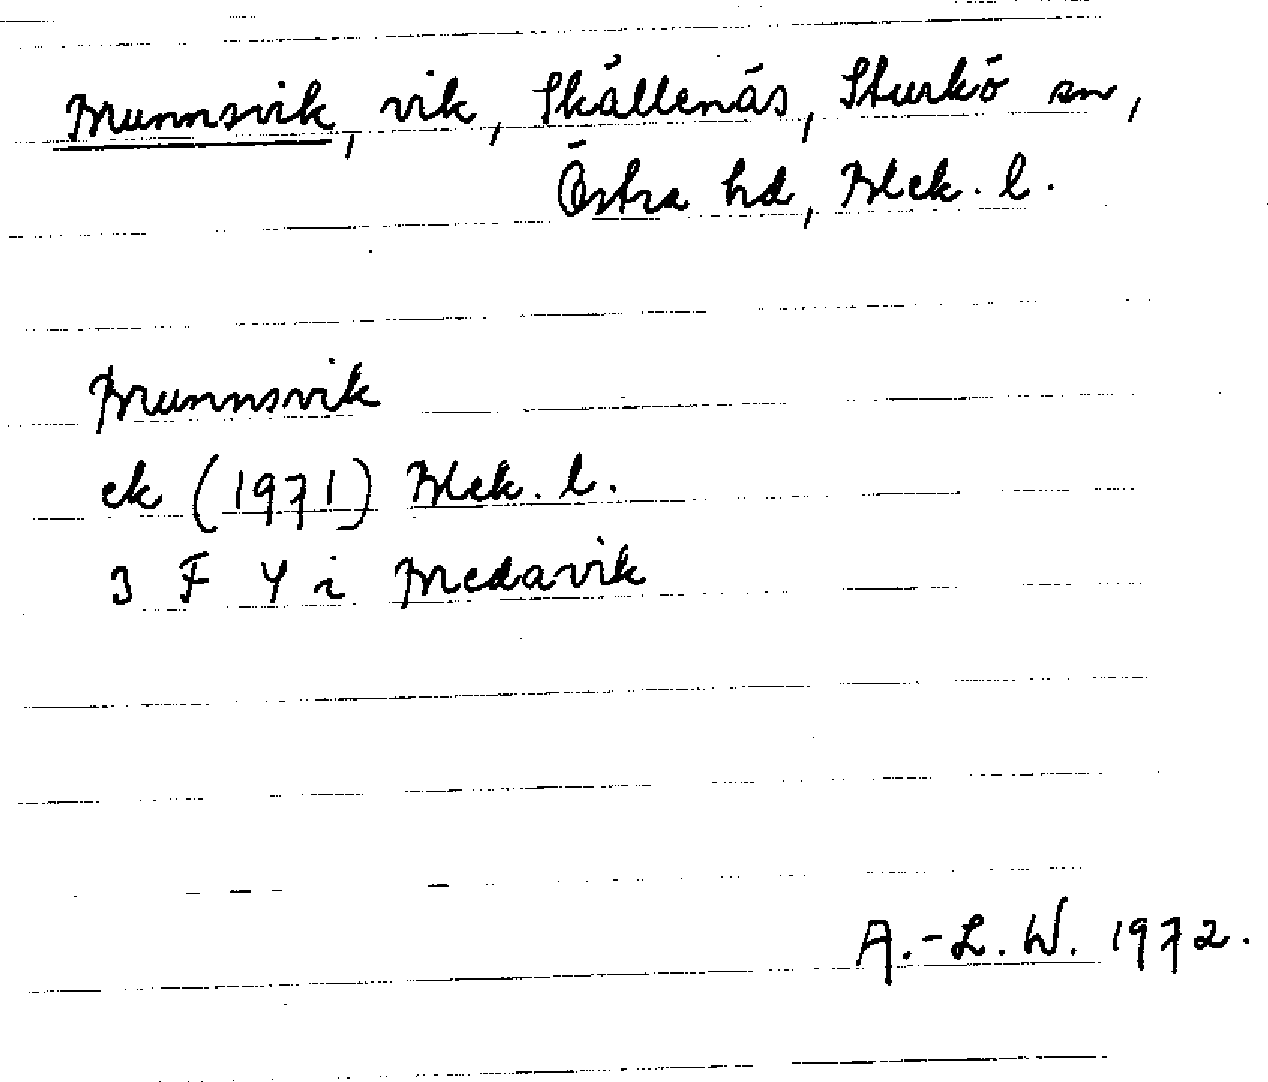 Brunnsvik, vik, Skällenäs, Sturkö sn,
Östra hd, Blek. l.
Brunnsvik
ek (1971) Blek. l.
3 F 4 i Bredavik
A.-L. W. 1972.